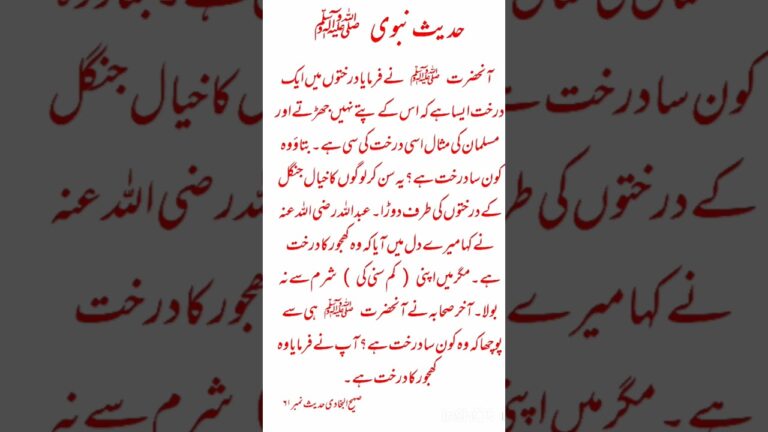 حدیث نبوی ﷺ
آنحضرت ﷺ نے فرمایا درختوں میں ایک
درخت ایسا ہے کہ اس کے پتے نہیں جھڑتے اور
مسلمان کی مثال اسی درخت کی سی ہے۔ بتاؤ وہ
کون سا درخت ہے؟ یہ سن کر لوگوں کا خیال جنگل
کے درختوں کی طرف دوڑا۔ عبداللہ رضی اللہ عنہ
نے کہا میرے دل میں آیا کہ وہ کھجور کا درخت
ہے۔ مگر میں اپنی ( کم سنی کی ) شرم سے نہ
بولا۔ آخر صحابہ نے آنحضرت ﷺ ہی سے
پوچھا کہ وہ کون سا درخت ہے؟ آپ نے فرمایا وہ
کھجور کا درخت ہے۔
صحیح البخاری حدیث نمبر ۶۱